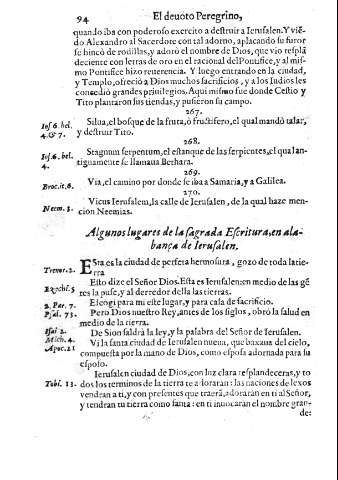 94 El deuoto Peregrino,
quando iba con poderoso exercito a destruir a Ierusalen. Y viẽ-
do Alexandro al Sacerdote con tal adorno, aplacando su furor
se hincò de rodillas, y adorò el nombre de Dios, que vio resplã
deciente con letras de oro en el racional del Pontifice, y al mis-
mo Pontifice hizo reuerencia. Y luego entrando en la ciudad,
y Templo, ofreciò a Dios muchos sacrificios, y a los Iudios les
concediò grandes priuilegios. Aqui mismo fue donde Cestio y
Tito plantaron sus tiendas, y pusieron su campo.
267.
Ios 6. bel. Silua, el bosque de la fruta, ò fructifero, el qual mandò talar,
4. & 7. y destruir Tito.
268.
Ios. 6. bel. Stagnum serpentum, el estanque de las serpientes, el qual an-
4. tiguamente se llamaua Bethara.
269.
Broc. it. 6. Via, el camino por donde se iba a Samaria, y a Galilea.
270.
Neem. 3. Vicus Ierusalem, la calle de Ierusalen, de la qual haze men-
cion Neemias.
Algunos lugares de la sagrada Escritura, en ala-
bança de Ierusalen.
Trenor. 2. Esta es la ciudad de perfeta hermosura, gozo de toda la tie-
rra
Ezechi. 5 Esto dize el Señor Dios. Esta es Ierusalen: en medio de las gẽ
tes la puse, y al derredor della las tierras.
2. Par. 7. Elegi para mi este lugar, y para casa de sacrificio.
Psal. 73. Pero Dios nuestro Rey, antes de los siglos, obrò la salud en
medio de la tierra.
Isai 2. De Sion saldrà la ley, y la palabra del Señor de Ierusalen.
Mich. 4. Vi la santa ciudad de Ierusalen nueua, que baxaua del cielo,
Apoc. 21 compuesta por la mano de Dios, como esposa adornada para su
esposo.
Ierusalen ciudad de Dios, con luz clara resplandeceras, y to
Tobi. 13. dos los terminos de la tierra te adoraran: las naciones de lexos
vendran a ti, y con presentes que traerã, adoraràn en ti al Señor,
y tendran tu tierra como santa: en ti inuocaràn el nombre gran-
de: